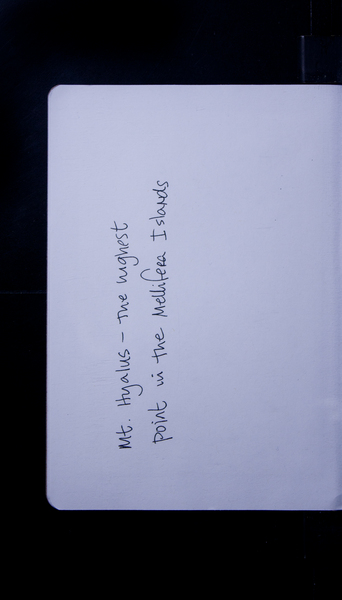 Mt. Hyalus – The highest
point in the Mellifera Islands